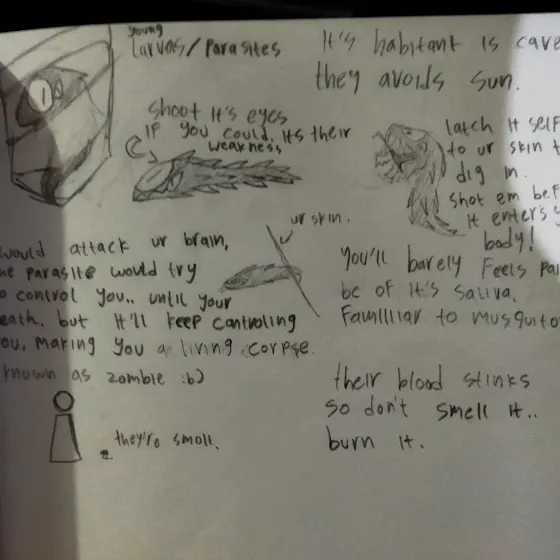 young
Larvas/Parasites
It's habitant is cave
they avoids sun.
shoot It's eyes
IF you could. its their
weakness
latch It self
to ur skin t
dig in.
shot em bef
It enters y
body!
ur skin.
would attack ur brain,
he parasite would try
o control you.. until your
eath. but It'll keep controling
ou, making you a living corpse.
known as zombie :b)
You'll barely Feels pai
be of It's saliva.
Familliar to musquito
their blood stinks
so don't smell it..
burn it.
they're smoll.